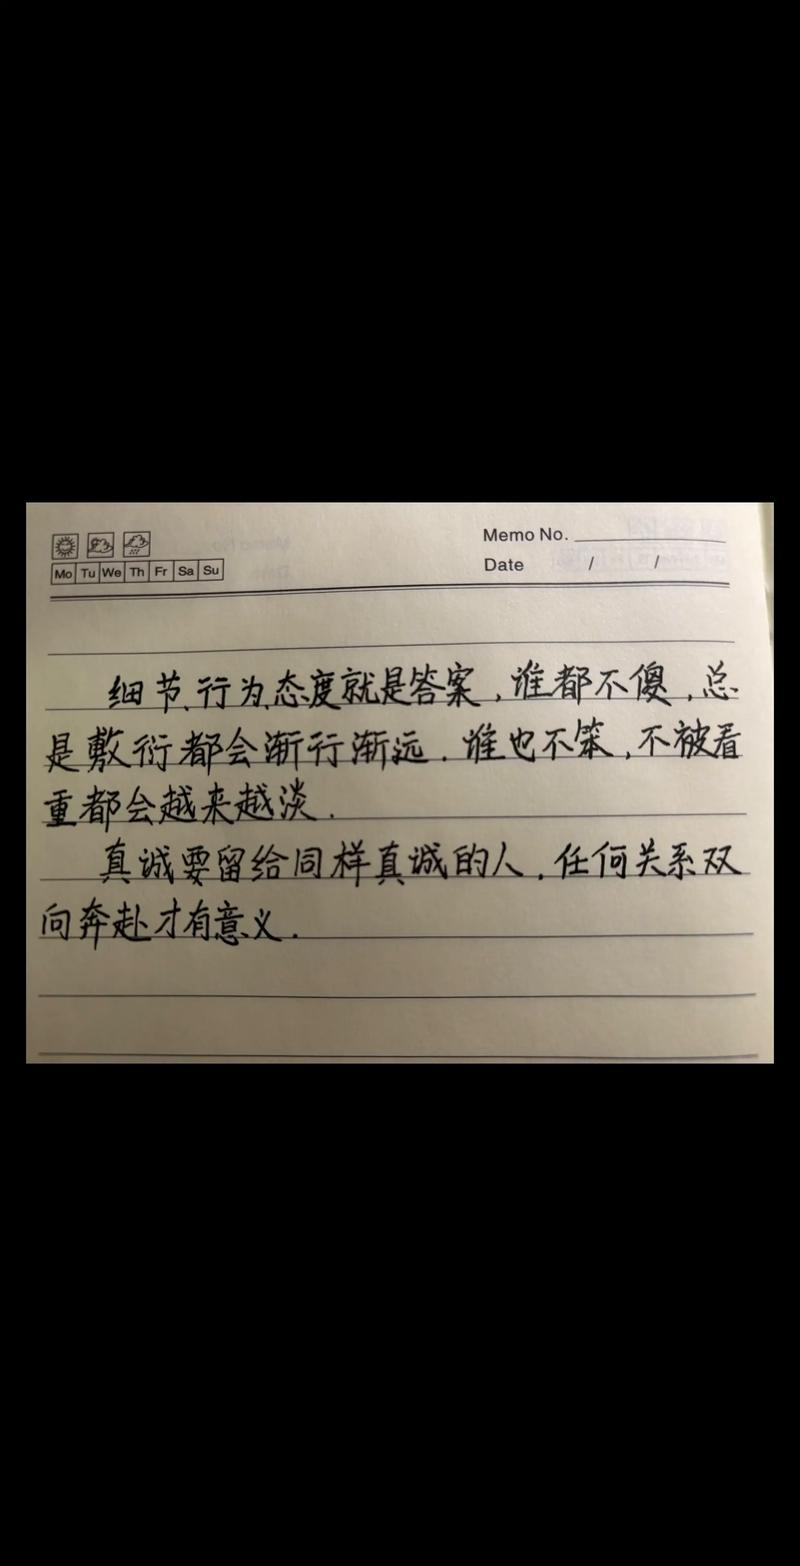 Memo No.
Mo Tu We Th Fr Sa Su
Date / /
细节、行为、态度就是答案,谁都不傻,总
是敷衍都会渐行渐远.谁也不笨,不被看
重都会越来越淡.
真诚要留给同样真诚的人.任何关系双
向奔赴才有意义.